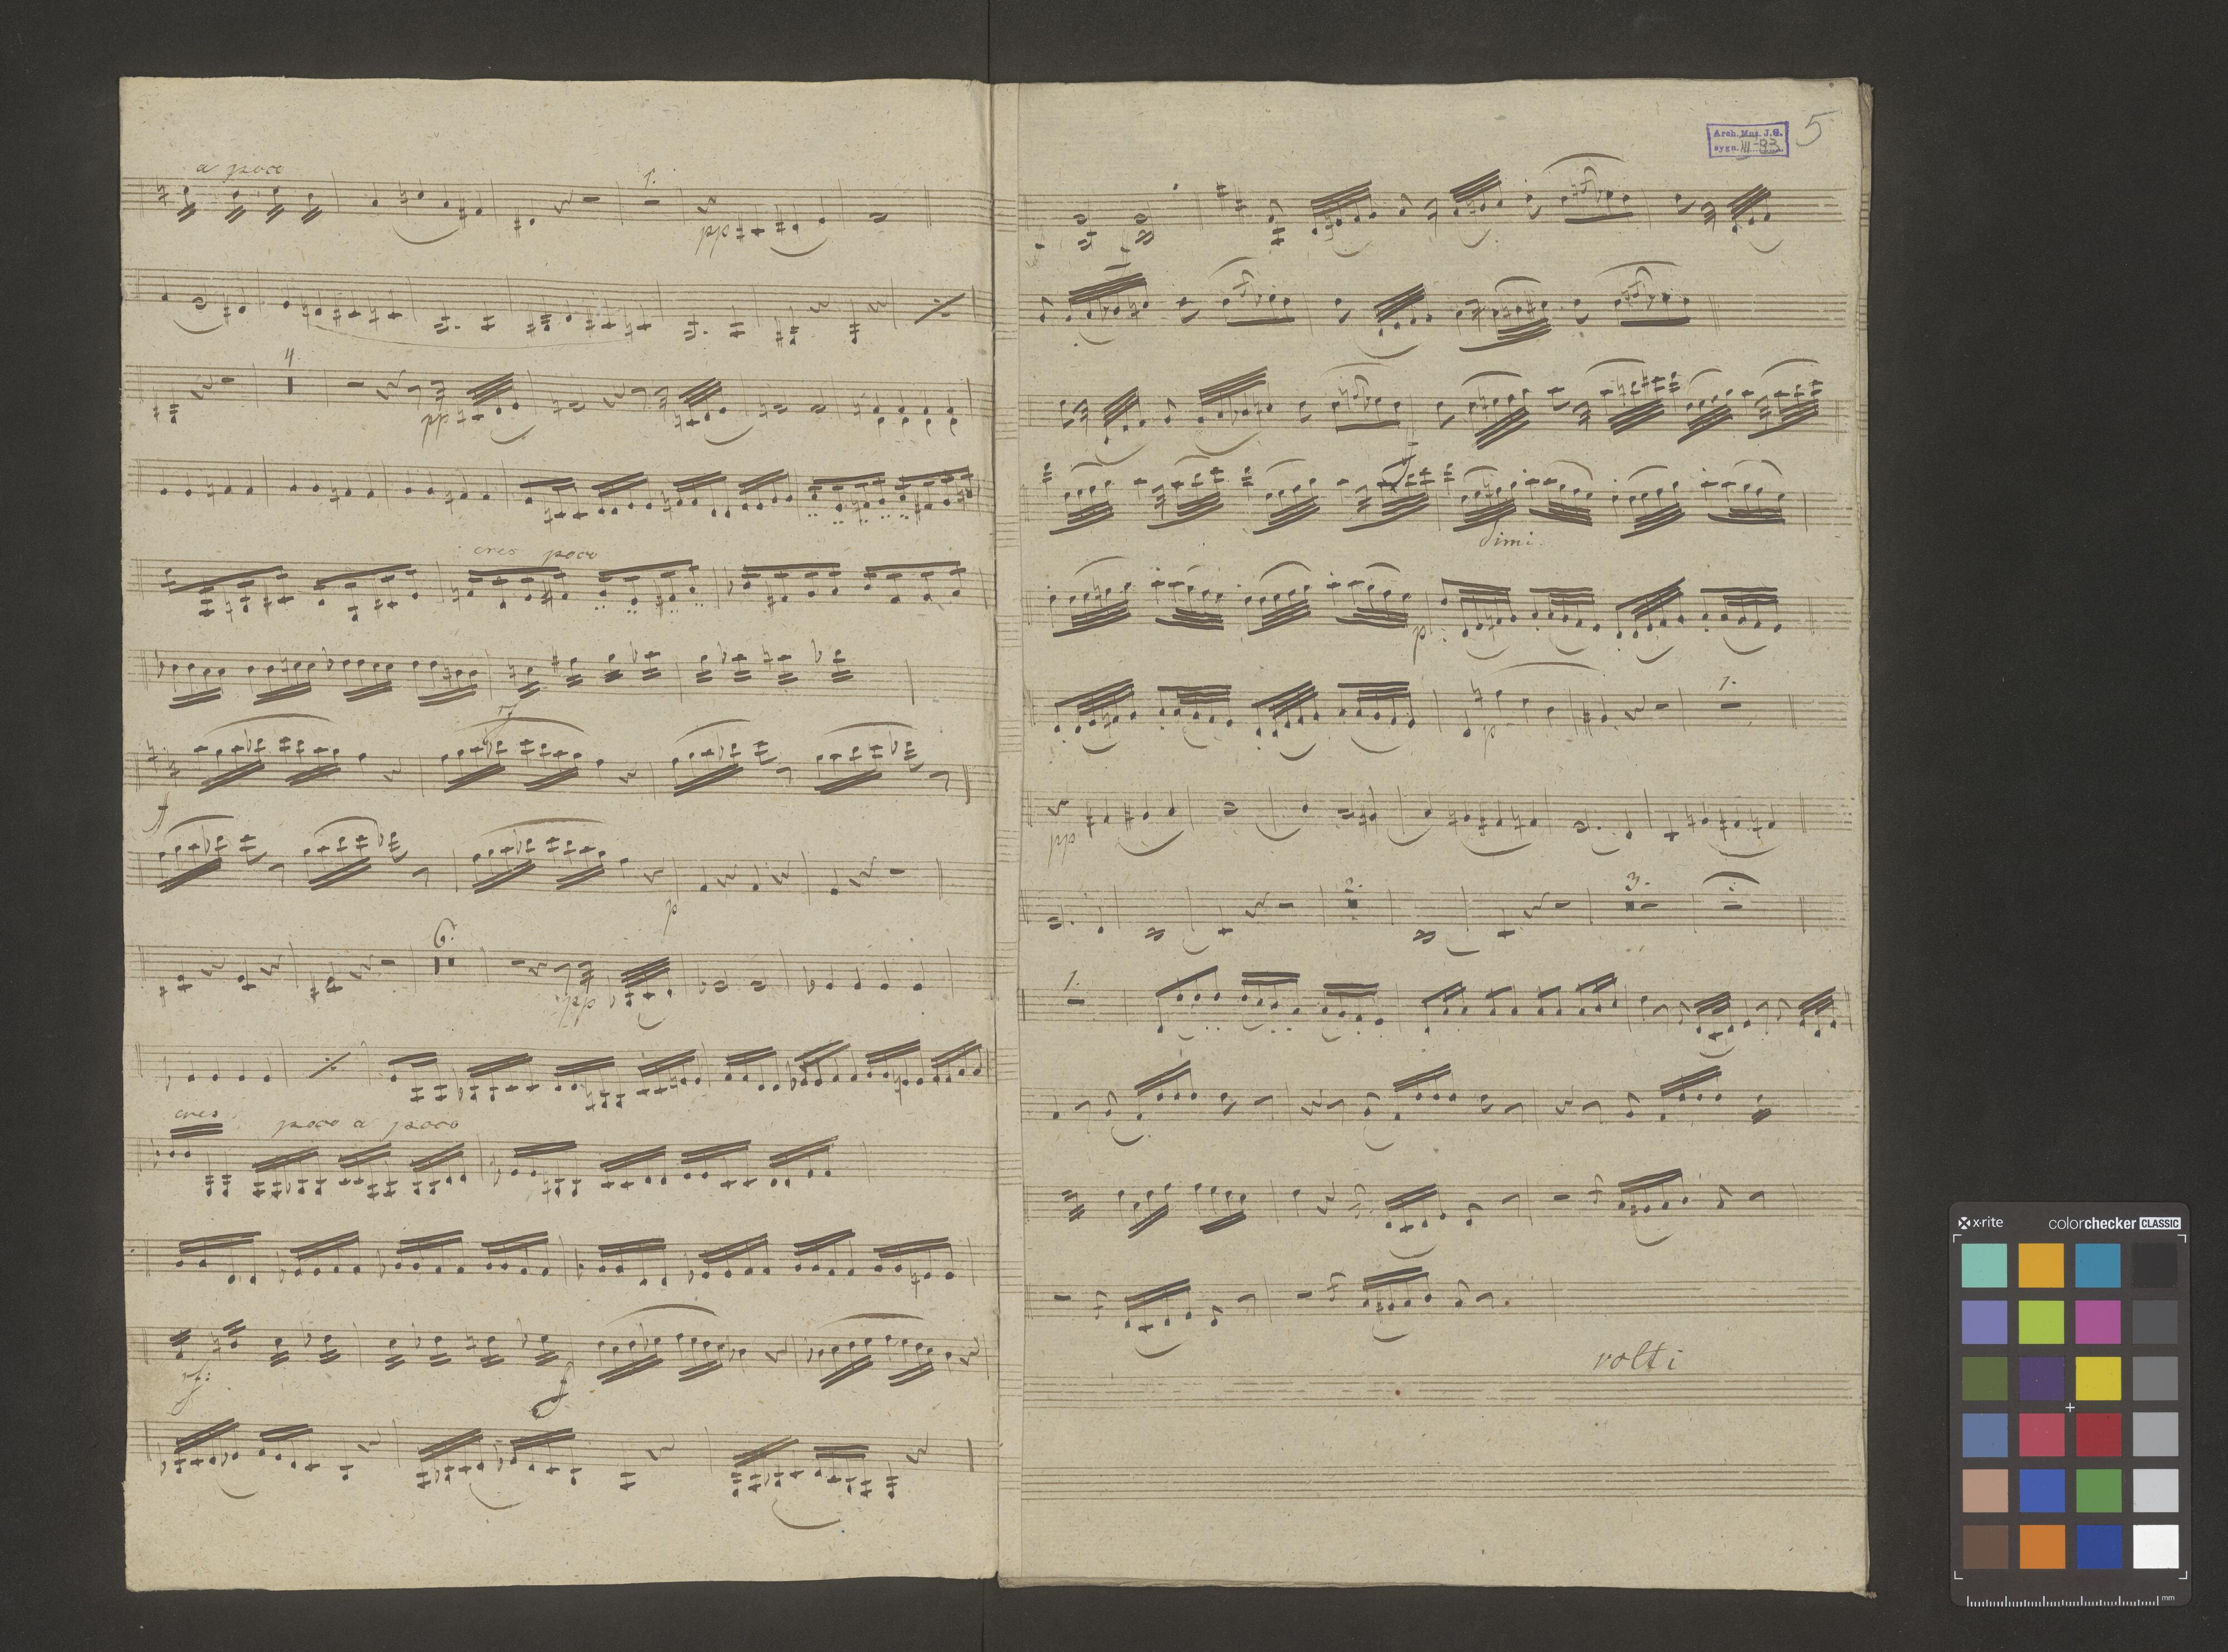 a poco
1.
pp
4
pp
cres poco
rf
f
p
6.
pp
cres poco a poco
rf:
f
Arch. Muz. J.G.
sygn. III-93
5
f
dimi.
p
p
1.
pp
2.
3.
1.
volti
x-rite
colorchecker CLASSIC
mm